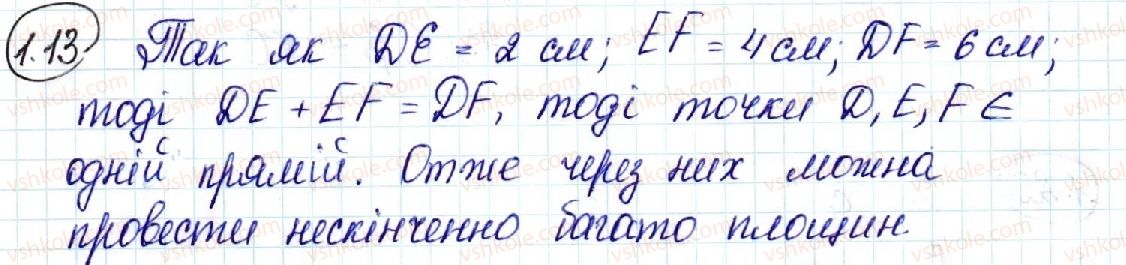 1.13 Так як DE = 2 см; EF = 4 см; DF = 6 см;
тоді DE + EF = DF, тоді точки D, E, F ∈
одній прямій. Отже через них можна
провести нескінченно багато площин.